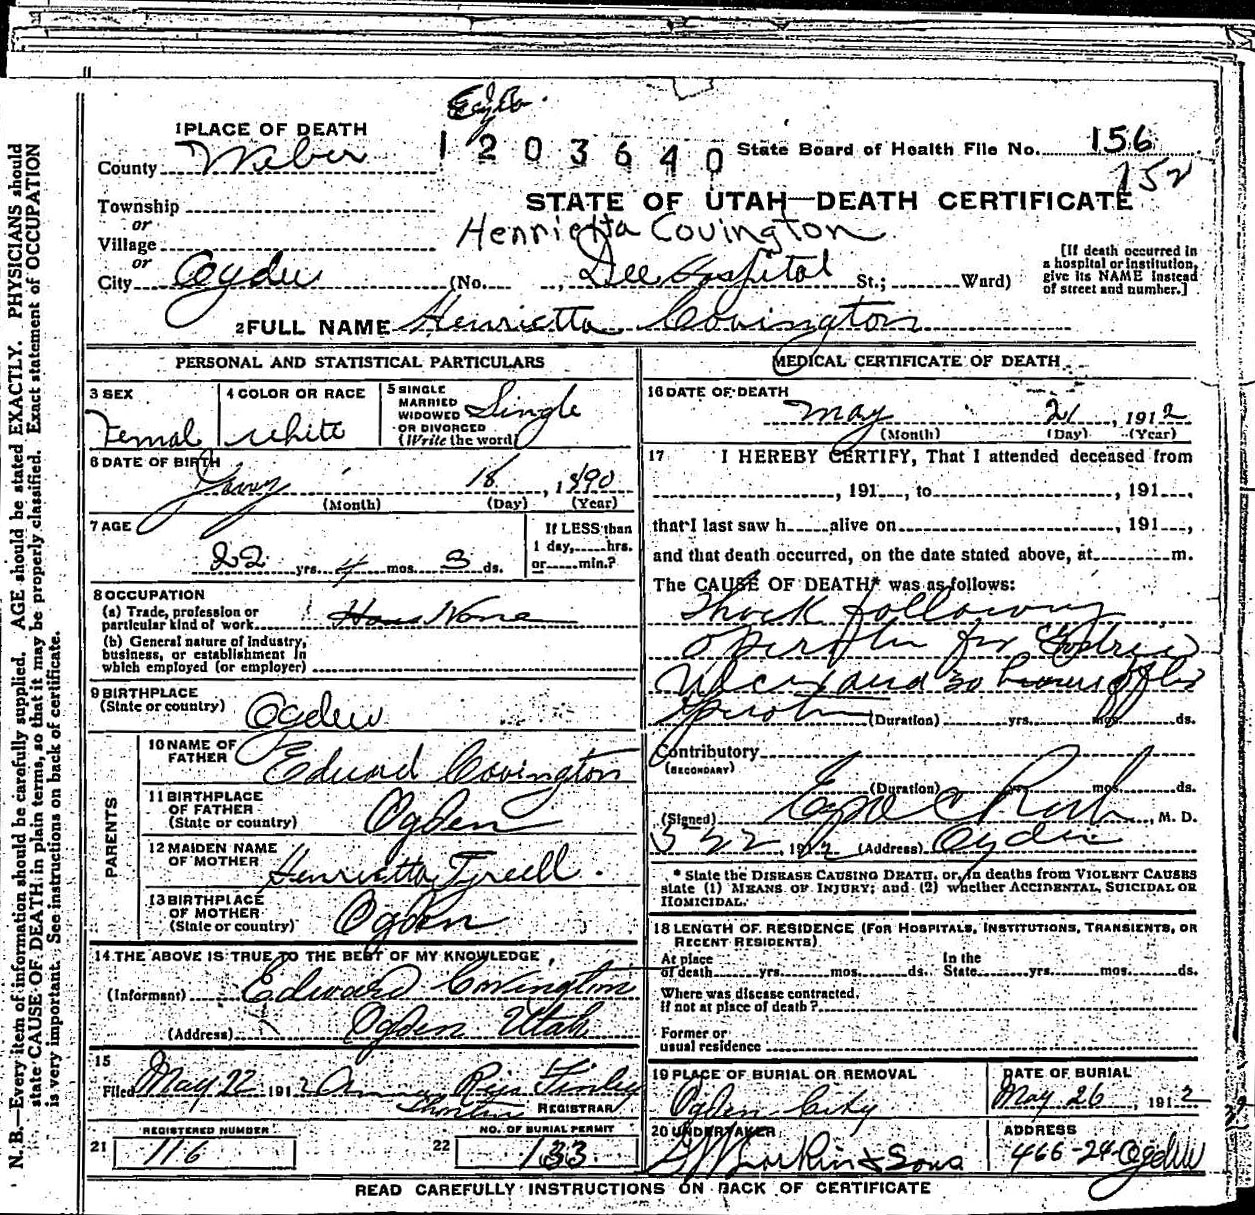 1 PLACE OF DEATH
County Weber
1203640
State Board of Health File No. 156
152
Township
or
Village
or
City Ogden (No. , Dee Hospital St.; Ward)
STATE OF UTAH—DEATH CERTIFICATE
Henrietta Covington
[If death occurred in
a hospital or institution,
give its NAME instead
of street and number.]
2 FULL NAME Henrietta Covington
PERSONAL AND STATISTICAL PARTICULARS
3 SEX
Femal
4 COLOR OR RACE
White
5 SINGLE
MARRIED
WIDOWED
OR DIVORCED
(Write the word)
Single
6 DATE OF BIRTH
18, 1890
(Month) (Day) (Year)
7 AGE
22 yrs. 4 mos. 3 ds.
If LESS than
1 day, hrs.
or min.?
8 OCCUPATION
(a) Trade, profession or
particular kind of work None
(b) General nature of industry,
business, or establishment in
which employed (or employer)
9 BIRTHPLACE
(State or country) Ogden
PARENTS
10 NAME OF
FATHER Edward Covington
11 BIRTHPLACE
OF FATHER
(State or country) Ogden
12 MAIDEN NAME
OF MOTHER Henrietta Tyrell.
13 BIRTHPLACE
OF MOTHER
(State or country) Ogden
14 THE ABOVE IS TRUE TO THE BEST OF MY KNOWLEDGE
(Informant) Edward Covington
(Address) Ogden Utah
15
Filed May 22 1912 Anna Ries Finley
REGISTRAR
REGISTERED NUMBER
21 116
NO. OF BURIAL PERMIT
22 133.
MEDICAL CERTIFICATE OF DEATH
16 DATE OF DEATH
May 21, 1912
(Month) (Day) (Year)
17 I HEREBY CERTIFY, That I attended deceased from
, 191 , to , 191 ,
that I last saw h alive on , 191 ,
and that death occurred, on the date stated above, at m.
The CAUSE OF DEATH* was as follows:
Shock following
operation for
Ulcer and 30 hours after
operation (Duration) yrs. mos. ds.
Contributory
(SECONDARY)
(Duration) mos. ds.
(Signed) Ezra C Rich, M. D.
5 22, 1912 (Address) Ogden
* State the DISEASE CAUSING DEATH, or, in deaths from VIOLENT CAUSES
state (1) MEANS OF INJURY; and (2) whether ACCIDENTAL, SUICIDAL OR
HOMICIDAL.
18 LENGTH OF RESIDENCE (FOR HOSPITALS, INSTITUTIONS, TRANSIENTS, OR
RECENT RESIDENTS)
At place
of death yrs. mos. ds.
In the
State yrs. mos. ds.
Where was disease contracted,
if not at place of death?
Former or
usual residence
19 PLACE OF BURIAL OR REMOVAL
Ogden City
DATE OF BURIAL
May 26, 1912
20 UNDERTAKER
Larkin & Sons
ADDRESS
466-24-Ogden
READ CAREFULLY INSTRUCTIONS ON BACK OF CERTIFICATE
N. B.—Every item of information should be carefully supplied. AGE should be stated EXACTLY. PHYSICIANS should
state CAUSE OF DEATH in plain terms, so that it may be properly classified. Exact statement of OCCUPATION
is very important. See instructions on back of certificate.